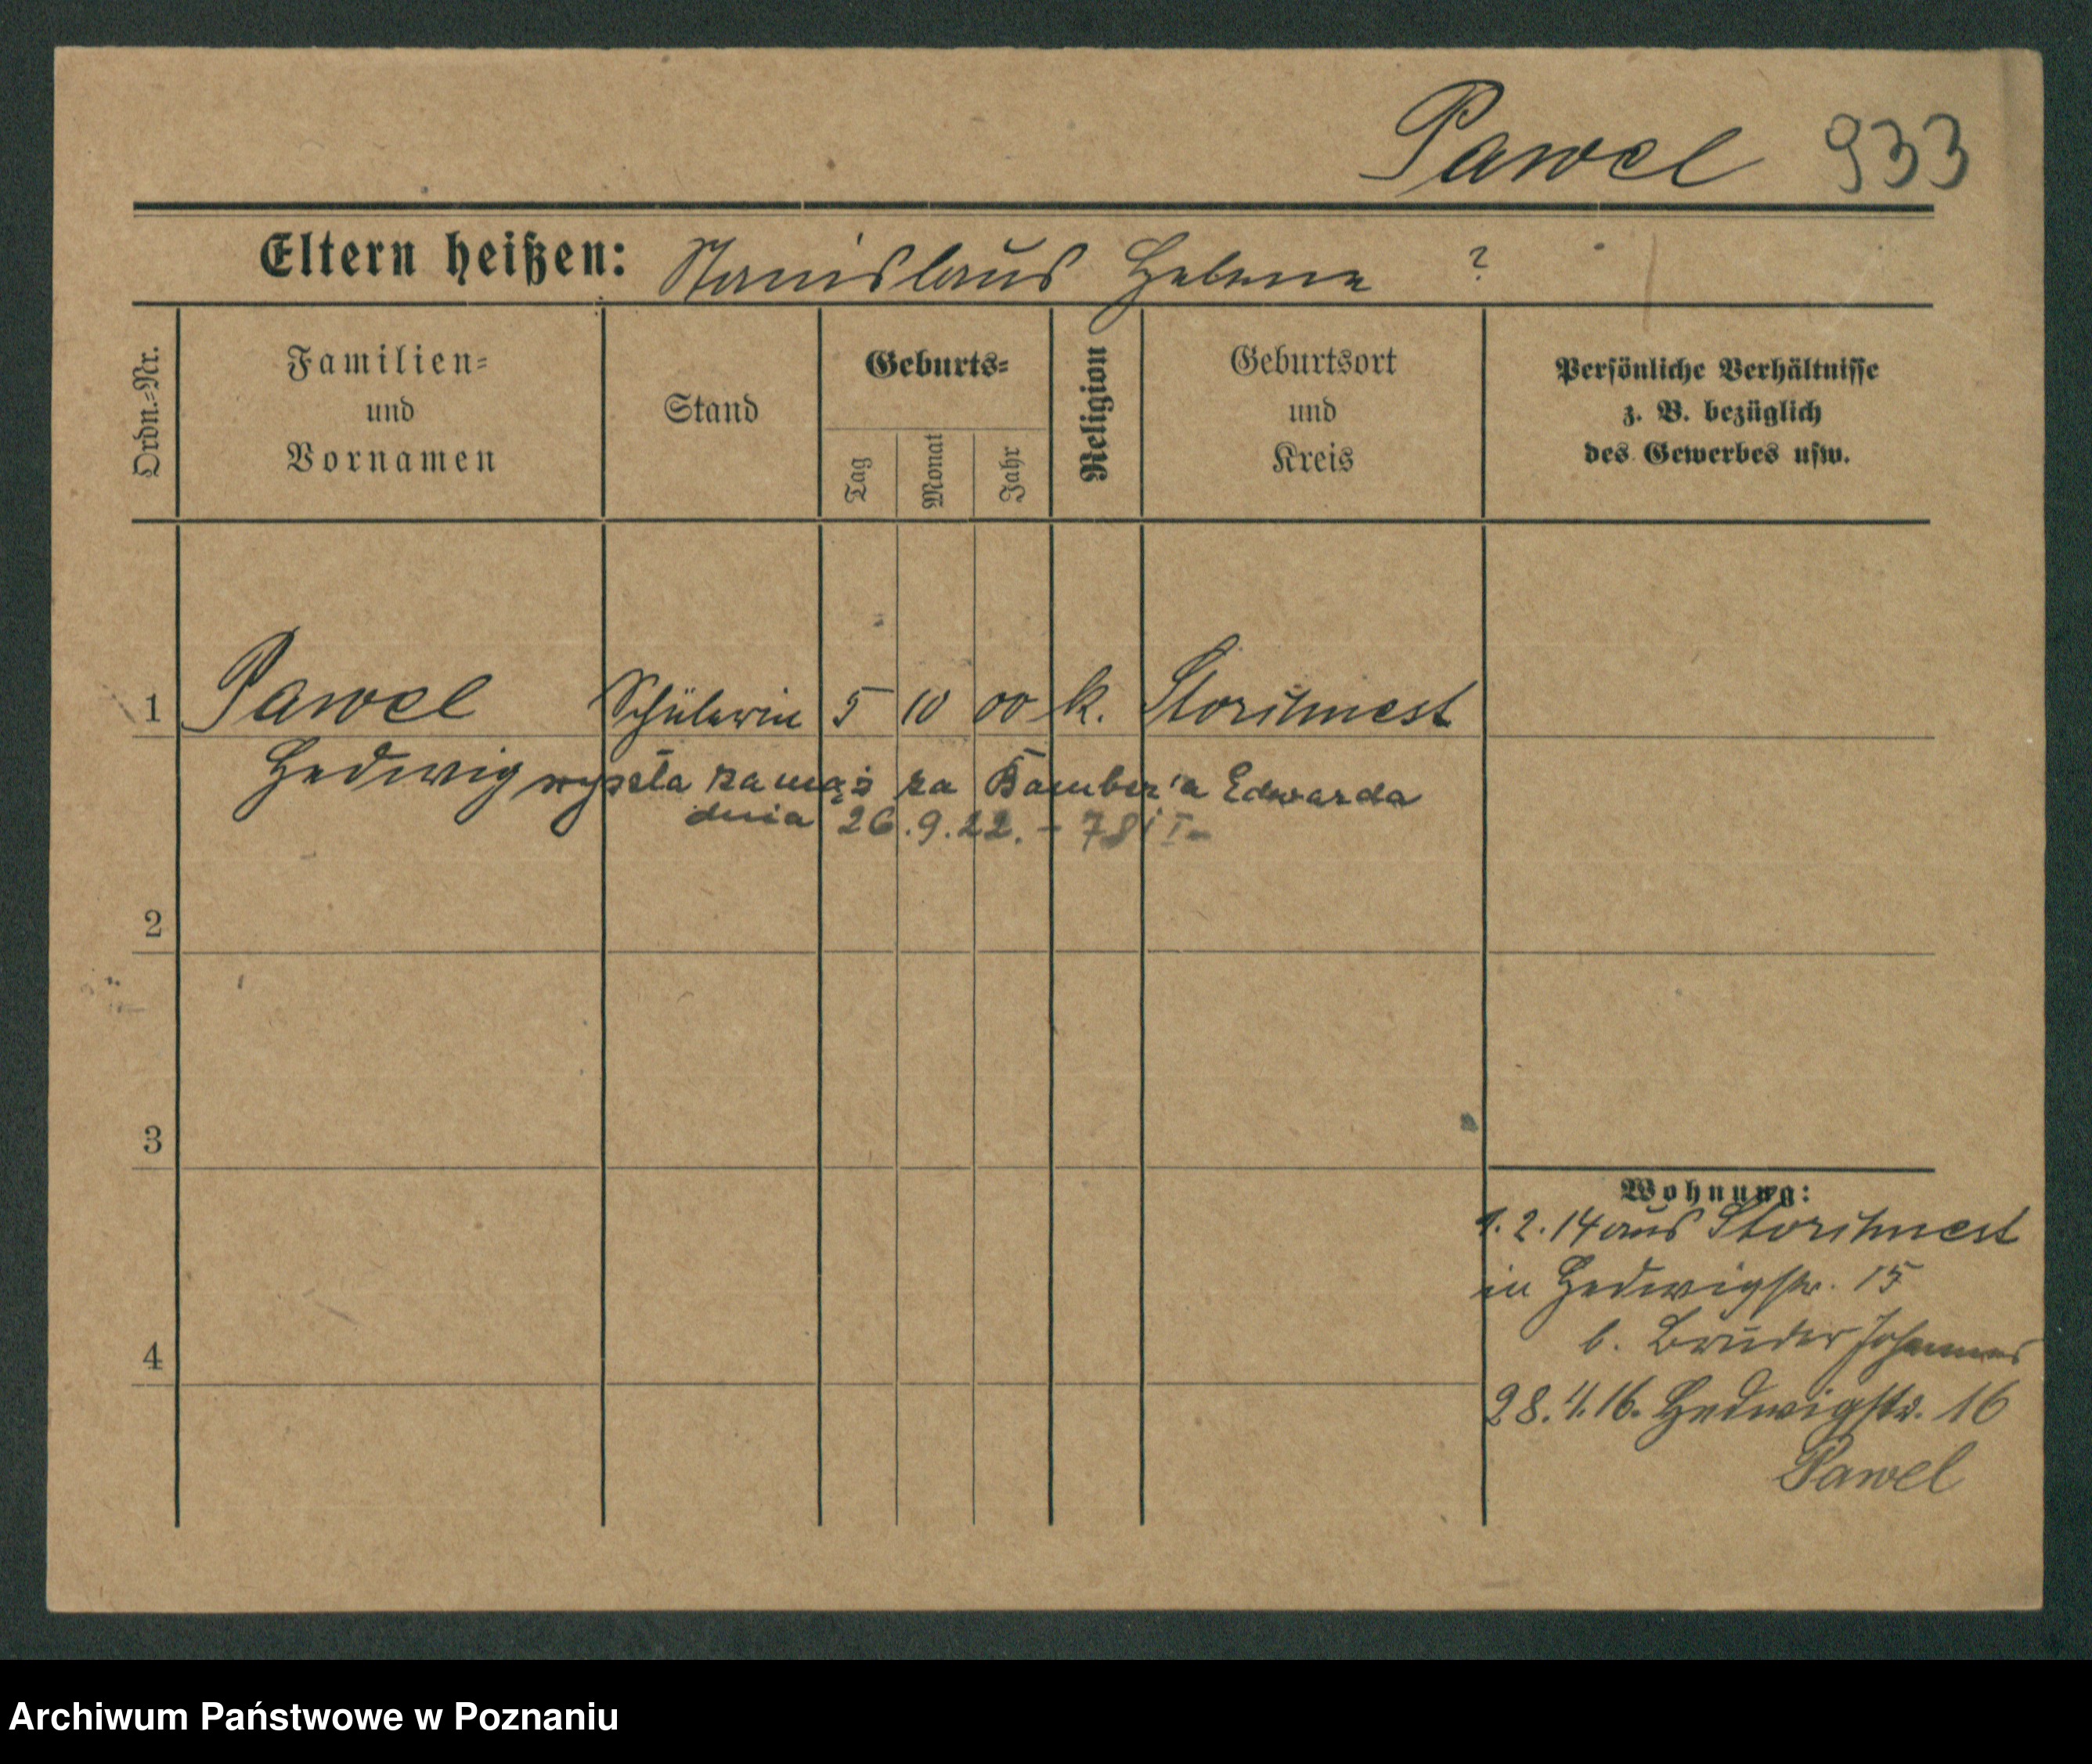 Pawel 933
Eltern heißen: Stanislaus Helene ?
Ordn.-Nr.
Familien-
und
Vornamen
Stand
Geburts-
Tag
Monat
Jahr
Religion
Geburtsort
und
Kreis
Persönliche Verhältnisse
z. B. bezüglich
des Gewerbes usw.
1 Pawel Schülerin 5 10 00 k. Storchnest
Hedwig wyszła zamąż za Bamber'a Edwarda
dnia 26.9.22. - 78
2
3
4
Wohnung:
1.2.14 aus Storchnest
in Hedwigstr. 15
b. Bruder Johannes
28.4.16. Hedwigstr. 16
Pawel
Archiwum Państwowe w Poznaniu